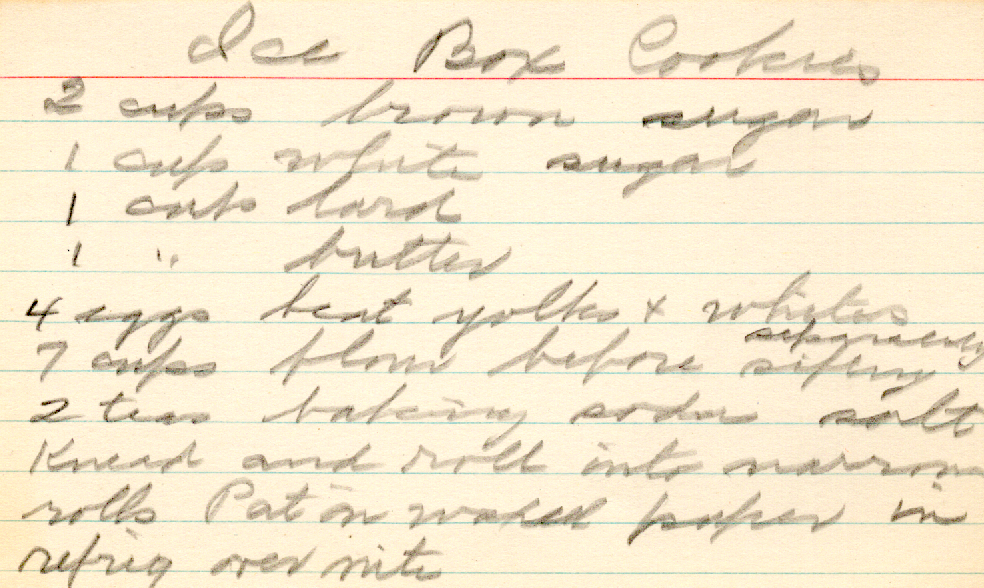 Ice Box Cookies
2 cups brown sugar
1 cup white sugar
1 cup lard
1 " butter
4 eggs beat yolks + whites
separately
7 cups flour before sifting
2 teas baking soda salt
Knead and roll into narrow
rolls Pat in waxed paper in
refrig over nite